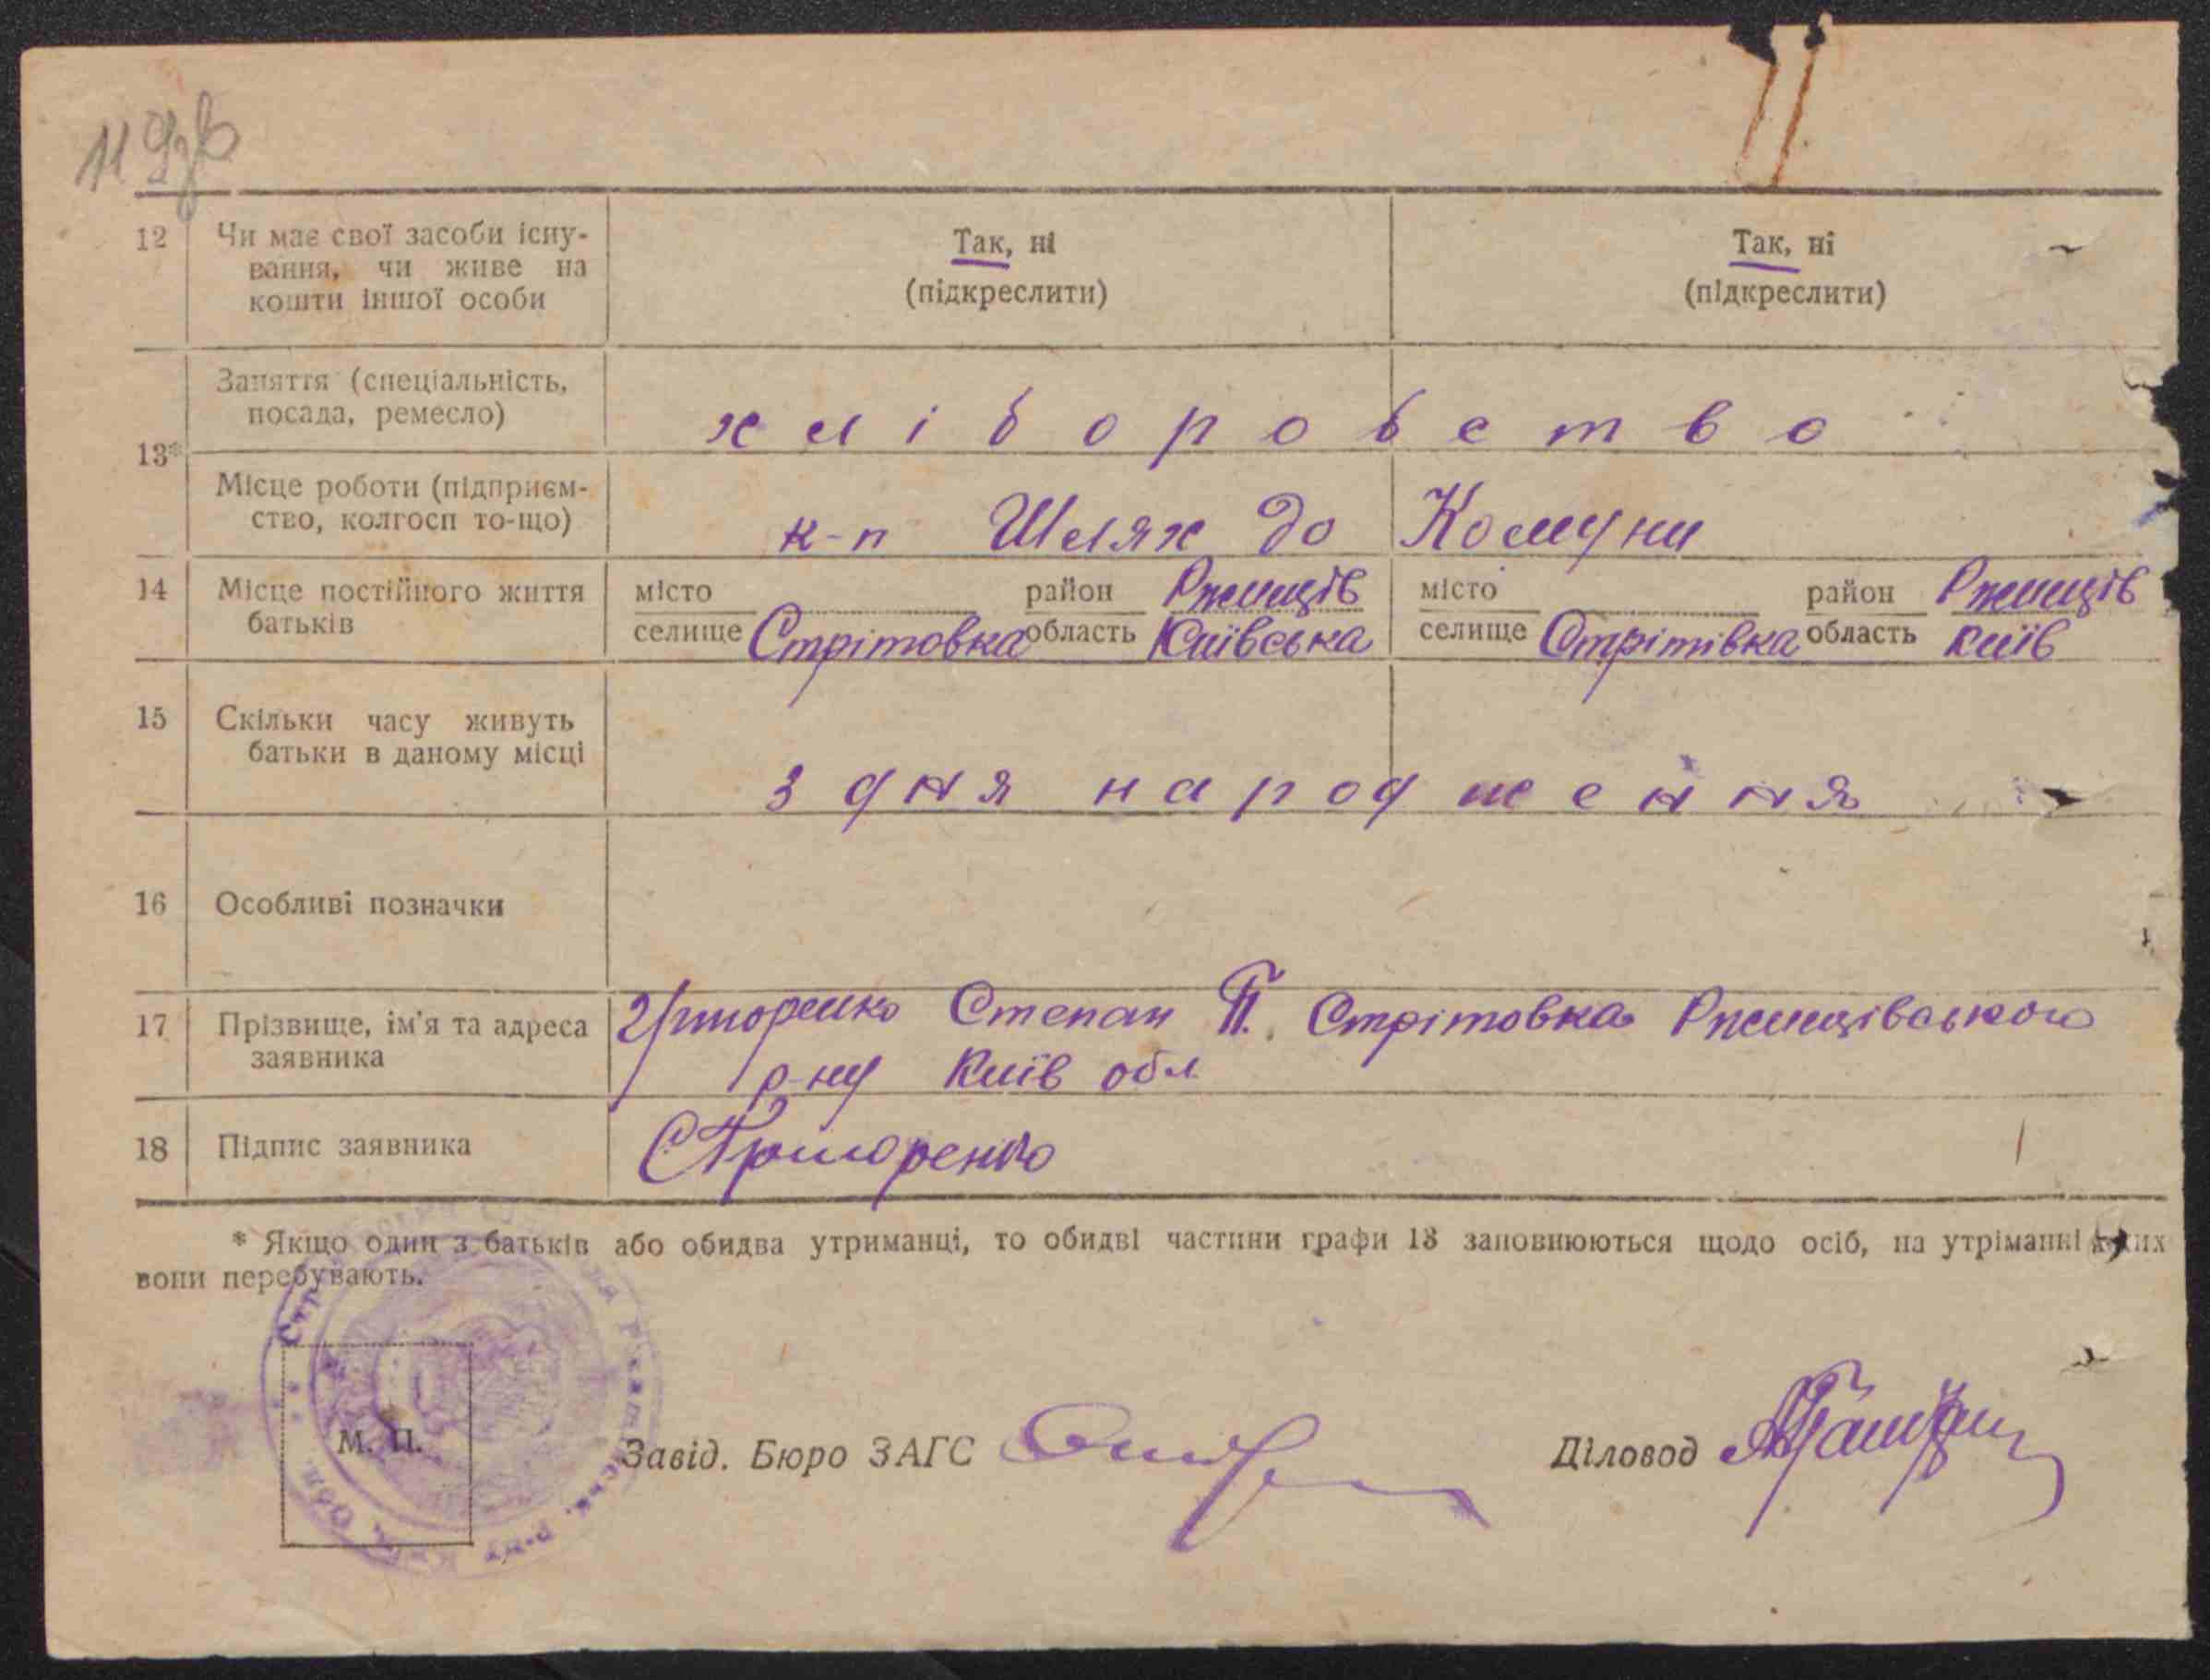 12 Чи має свої засоби існу-
вання, чи живе на
кошти іншої особи
Так, ні
(підкреслити)
Так, ні
(підкреслити)
13*
Заняття (спеціальність,
посада, ремесло)
хліборобство
Місце роботи (підприєм-
ство, колгосп то-що)
к-п Шлях до Комуни
14 Місце постійного життя
батьків
місто район Ржищів
селище Стрітовка область Київська
місто район Ржищів
селище Стрітівка область Київ
15 Скільки часу живуть
батьки в даному місці
з дня народження
16 Особливі позначки
17 Прізвище, ім'я та адреса
заявника
Григоренко Степан П. Стрітовка Ржищівського
р-ну Київ обл
18 Підпис заявника
СГригоренко
* Якщо один з батьків або обидва утриманці, то обидві частини графи 13 заповнюються щодо осіб, на утріманні яких
вони перебувають.
М. П.
Завід. Бюро ЗАГС
Діловод